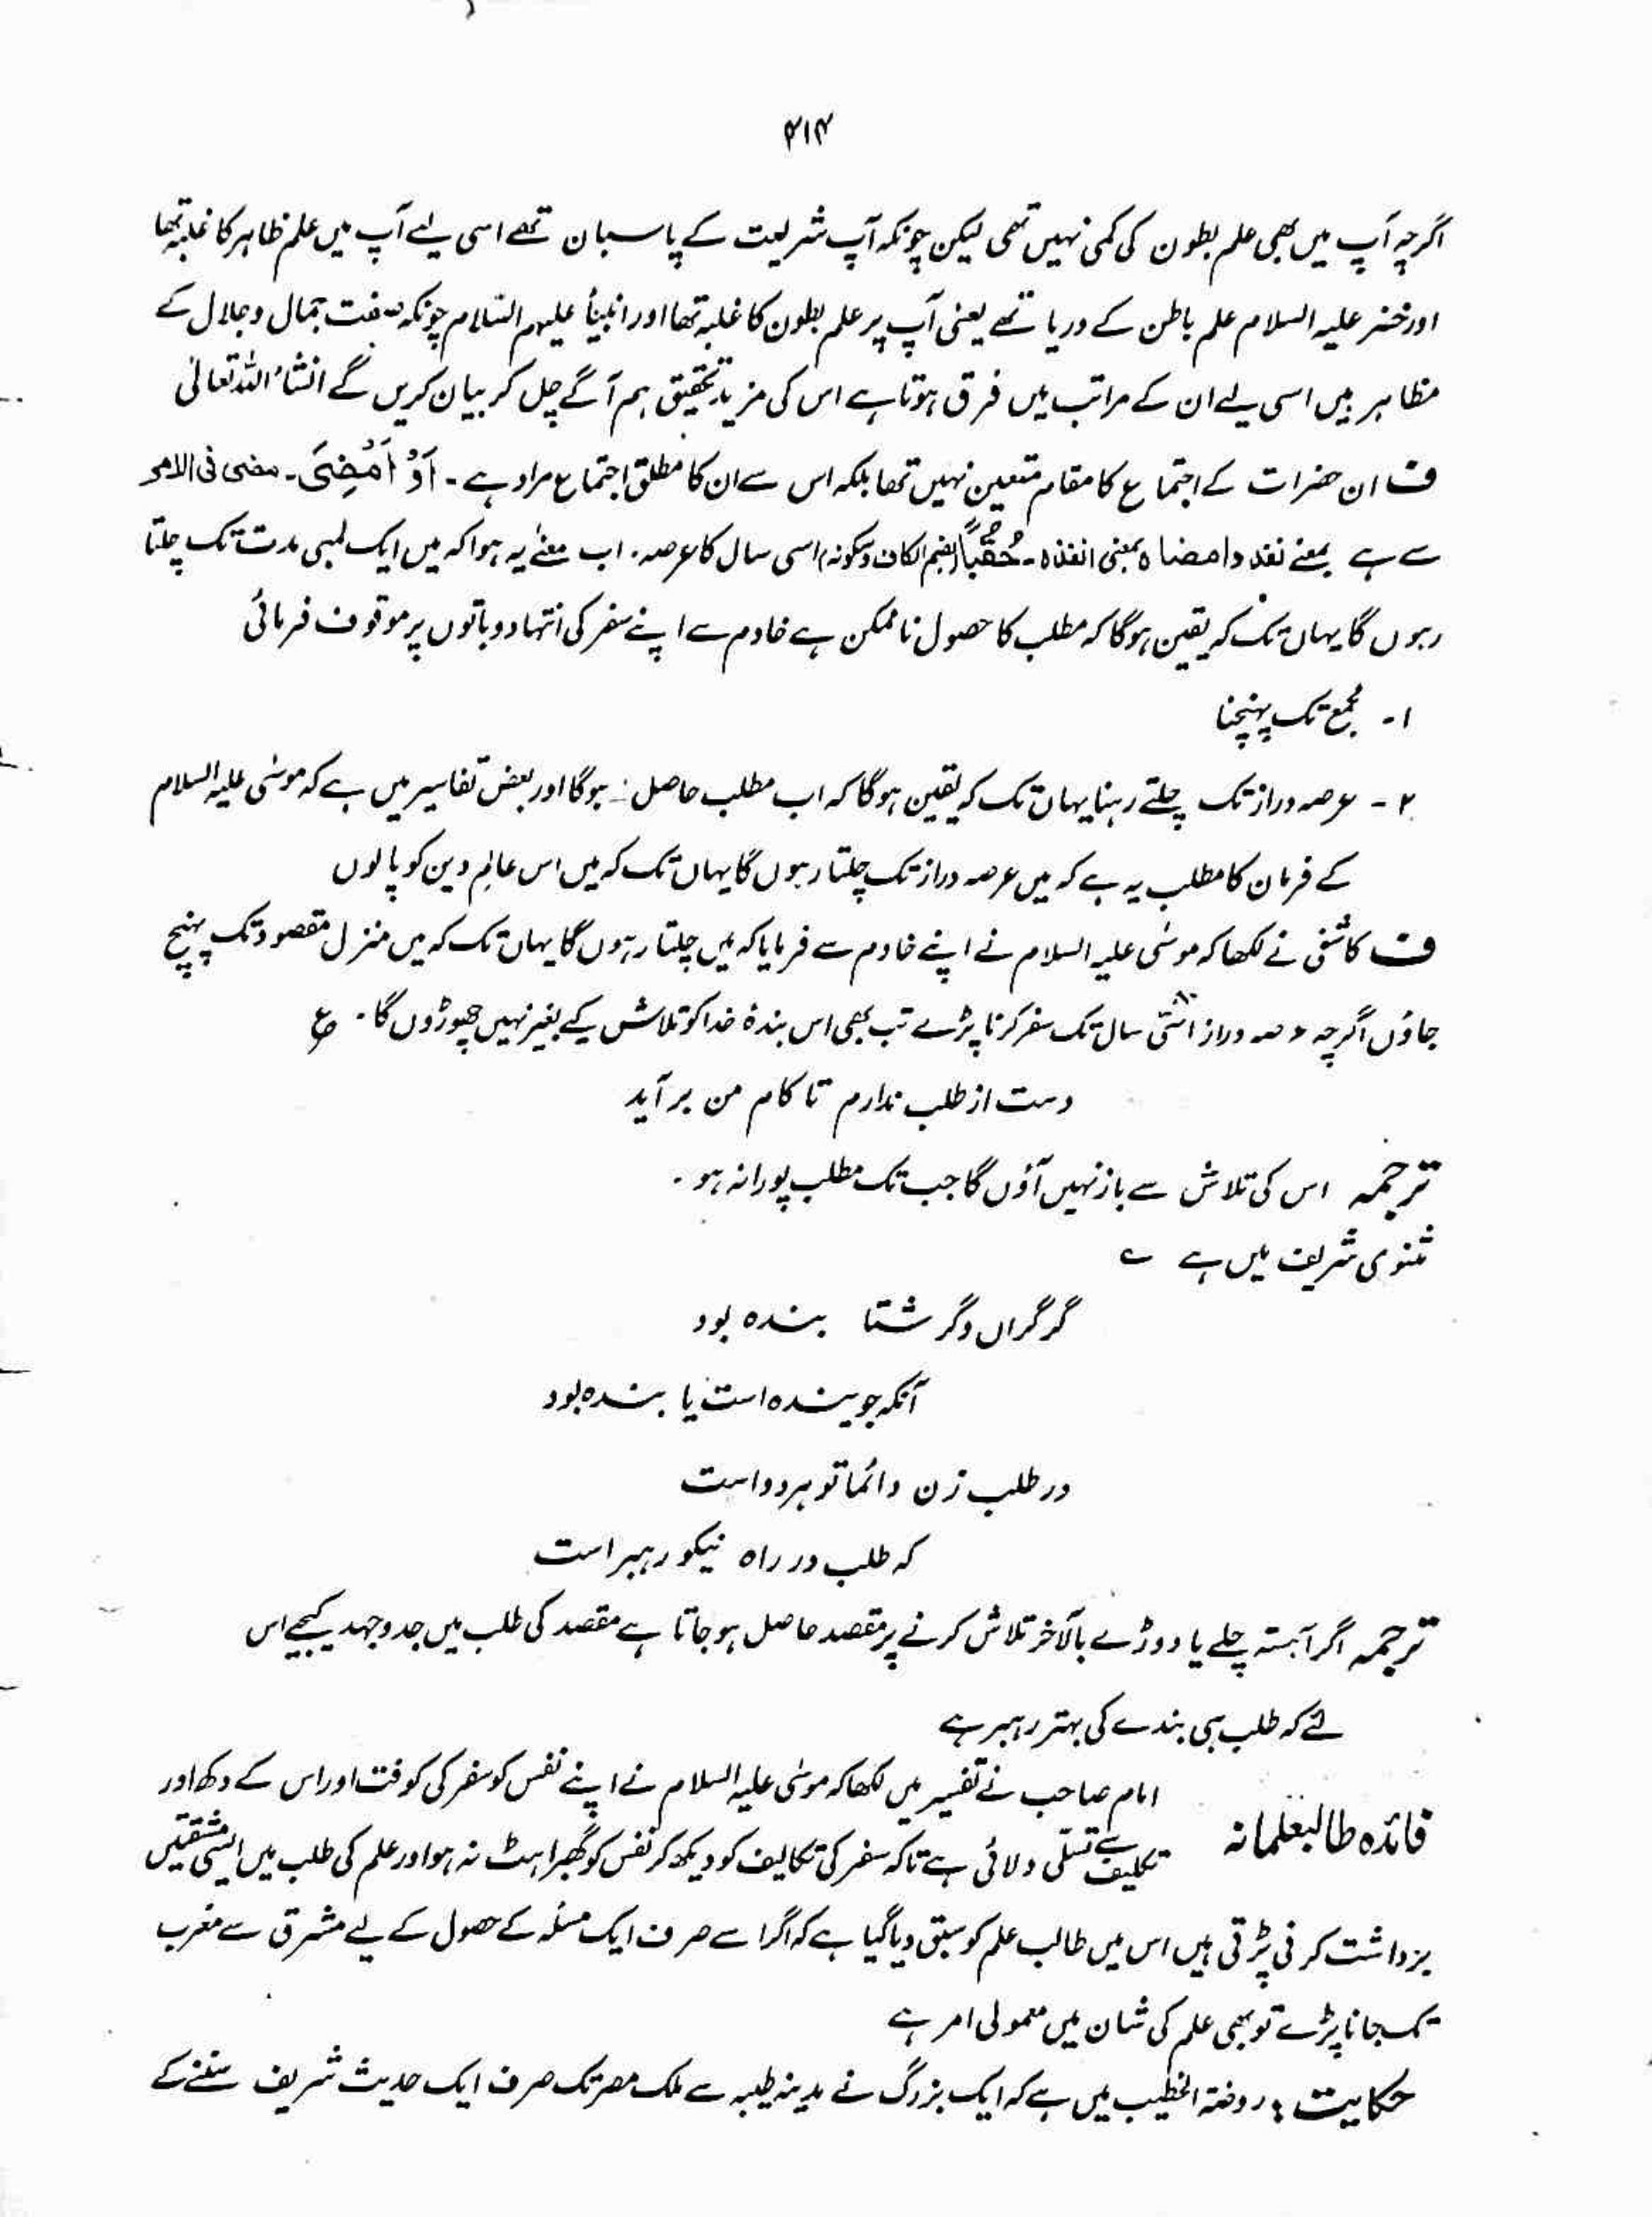 ۴۱۴
اگرچہ آپ میں بھی علم بطون کی کمی نہیں تھی لیکن چونکہ آپ شریعت کے پاسبان تھے اسی لیے آپ میں علم ظاہر کا غلبہ تھا
اور خضر علیہ السلام علم باطن کے دریا تھے یعنی آپ پر علم بطون کا غلبہ تھا اور انبیأ علیہم السّلام چونکہ صفت جمال و جلال کے
مظاہر ہیں اسی لیے ان کے مراتب میں فرق ہوتا ہے اس کی مزید تحقیق ہم آگے چل کر بیان کریں گے انشاء اللہ تعالیٰ
ف ان حضرات کے اجتماع کا مقام متعین نہیں تھا بلکہ اس سے ان کا مطلق اجتماع مراد ہے ۔ اَوْ اَمْضِیَ ۔ مضی فی الامر
سے ہے بمعنے نفذ وامضاہ بمعنی انفذہ ۔ حُقُباً (بضم الکاف وسکونہ) اسی سال کا عرصہ ۔ اب معنےٰ یہ ہوا کہ میں ایک لمبی مدت تک چلتا
رہوں گا یہاں تک کہ یقین ہوگا کہ مطلب کا حصول ناممکن ہے خادم سے اپنے سفر کی انتہا دو باتوں پر موقوف فرمائی
۱۔ مجمع تک پہنچنا
۲ ۔ عرصہ دراز تک چلتے رہنا یہاں تک کہ یقین ہوگا کہ اب مطلب حاصل نہ ہوگا اور بعض تفاسیر میں ہے کہ موسٰی علیہ السلام
کے فرمان کا مطلب یہ ہے کہ میں عرصہ دراز تک چلتا رہوں گا یہاں تک کہ میں اس عالم دین کو پا لوں
ف کاشفی نے لکھا کہ موسٰی علیہ السلام نے اپنے خادم سے فرمایا کہ میں چلتا رہوں گا یہاں تک کہ میں منزل مقصود تک پہنچ
جاؤں اگرچہ عرصہ دراز اسّی سال تک سفر کرنا پڑے تب بھی اس بندۂ خدا کو تلاش کیے بغیر نہیں چھوڑوں گا ۔ ع
دست از طلب ندارم تا کام من برآید
ترجمہ اس کی تلاش سے باز نہیں آؤں گا جب تک مطلب پورا نہ ہو ۔
مثنوی شریف میں ہے ؎
گر گراں وگر شتا بندہ بود
آنکہ جویندہ است یا بندہ بود
در طلب زن دائما تو ہر دو است
کہ طلب در راہ نیکو رہبر است
ترجمہ اگر آہستہ چلے یا دوڑے بالآخر تلاش کرنے پر مقصد حاصل ہو جاتا ہے مقصد کی طلب میں جدوجہد کیجیے اس
لئے کہ طلب ہی بندے کی بہتر رہبر ہے
فائدہ طالبعلمانہ امام صاحب نے تفسیر میں لکھا کہ موسٰی علیہ السلام نے اپنے نفس کو سفر کی کوفت اور اس کے دکھ اور
تکلیف سے تسلّی دلائی ہے تاکہ سفر کی تکالیف کو دیکھ کر نفس کو گھبراہٹ نہ ہو اور علم کی طلب میں ایسی مشقتیں
برداشت کرنی پڑتی ہیں اس میں طالب علم کو سبق دیا گیا ہے کہ اگر اسے صرف ایک مسئلہ کے حصول کے لیے مشرق سے مغرب
تک جانا پڑے تو بھی علم کی شان میں معمولی امر ہے
حکایت : روضۃ الخطیب میں ہے کہ ایک بزرگ نے مدینہ طیبہ سے ملک مصر تک صرف ایک حدیث شریف سننے کے